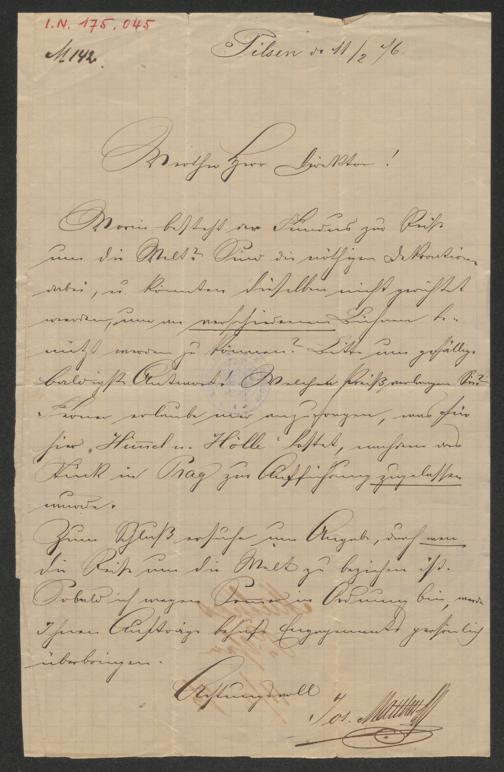 I.N. 175.045
№ 142.
Pilsen d. 11/2 76.
Werther Herr Direktor!
Worin besteht der Fundus zur Reise
um die Welt? Sind die nöthigen Dekorationen
dabei, u. könnten dieselben nicht gerichtet
werden, um an verschiedenen Bühnen be-
nützt werden zu können? Bitte um gefällige
baldigste Antwort! Welchen Preiß verlangen Sie?
Ferner erlaube mir anzufragen, was für
hier „Himmel u. Hölle“ kostet, nachdem das
Stück in Prag zur Aufführung zugelassen
wurde.
Zum Schluß ersuche um Angabe, durch wen
die Reise um die Welt zu beziehen ist.
Sobald ich wegen Sommer in Ordnung bin, werde
Ihnen Aufträge behufs Engagements persönlich
überbringen.
Achtungsvoll
Jos.